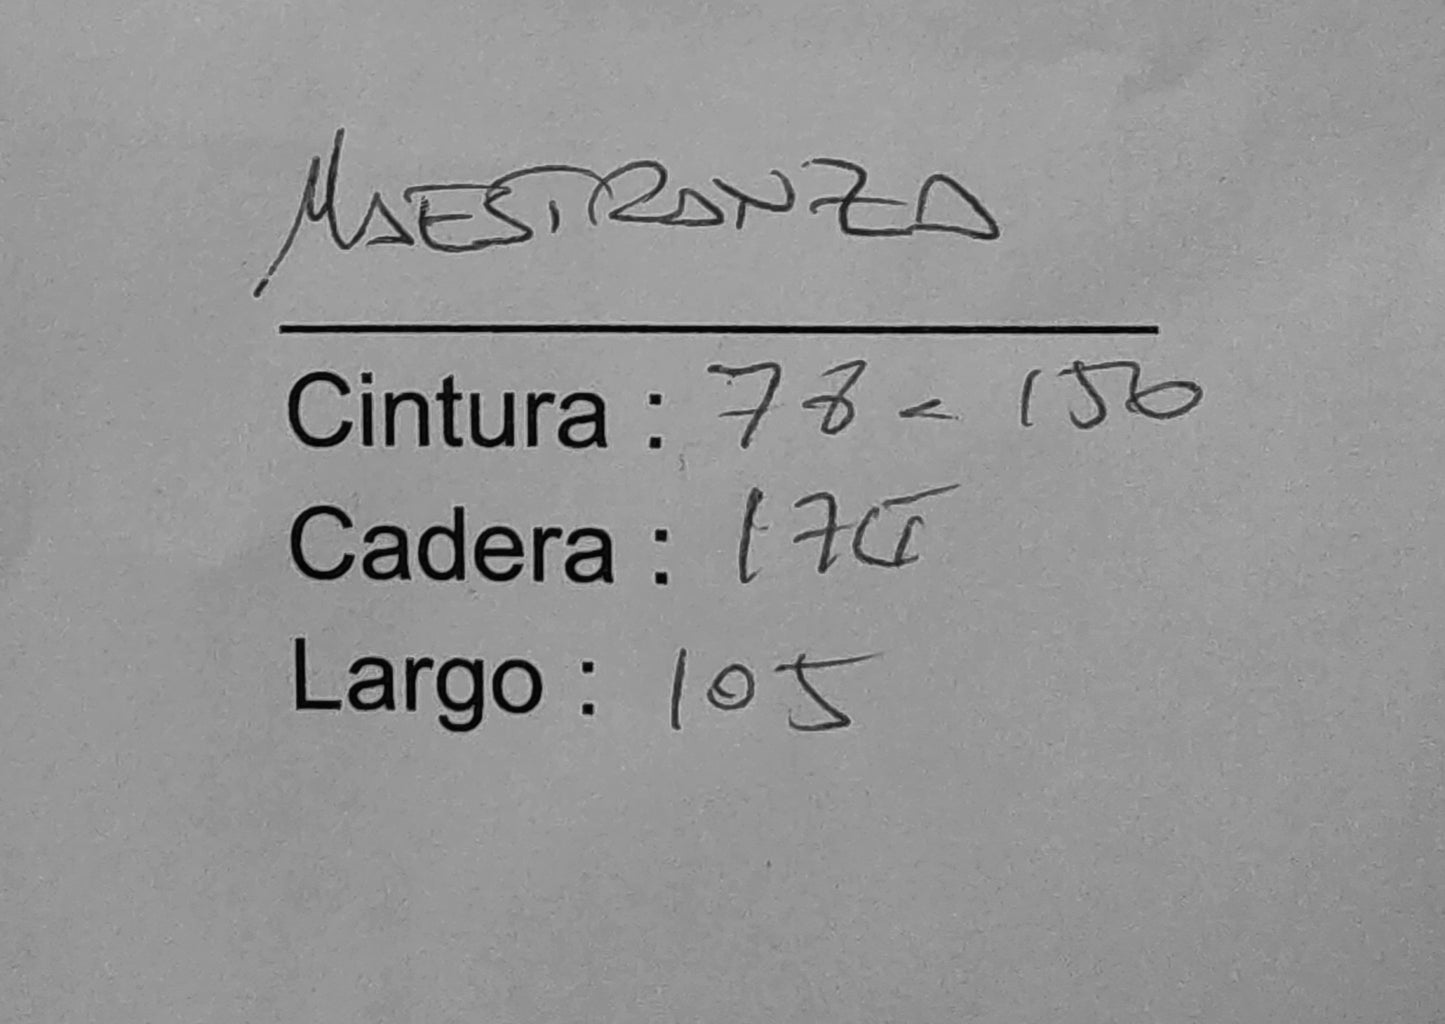 MAESTRANZA
Cintura : 78 - 150
Cadera :
Largo : 105